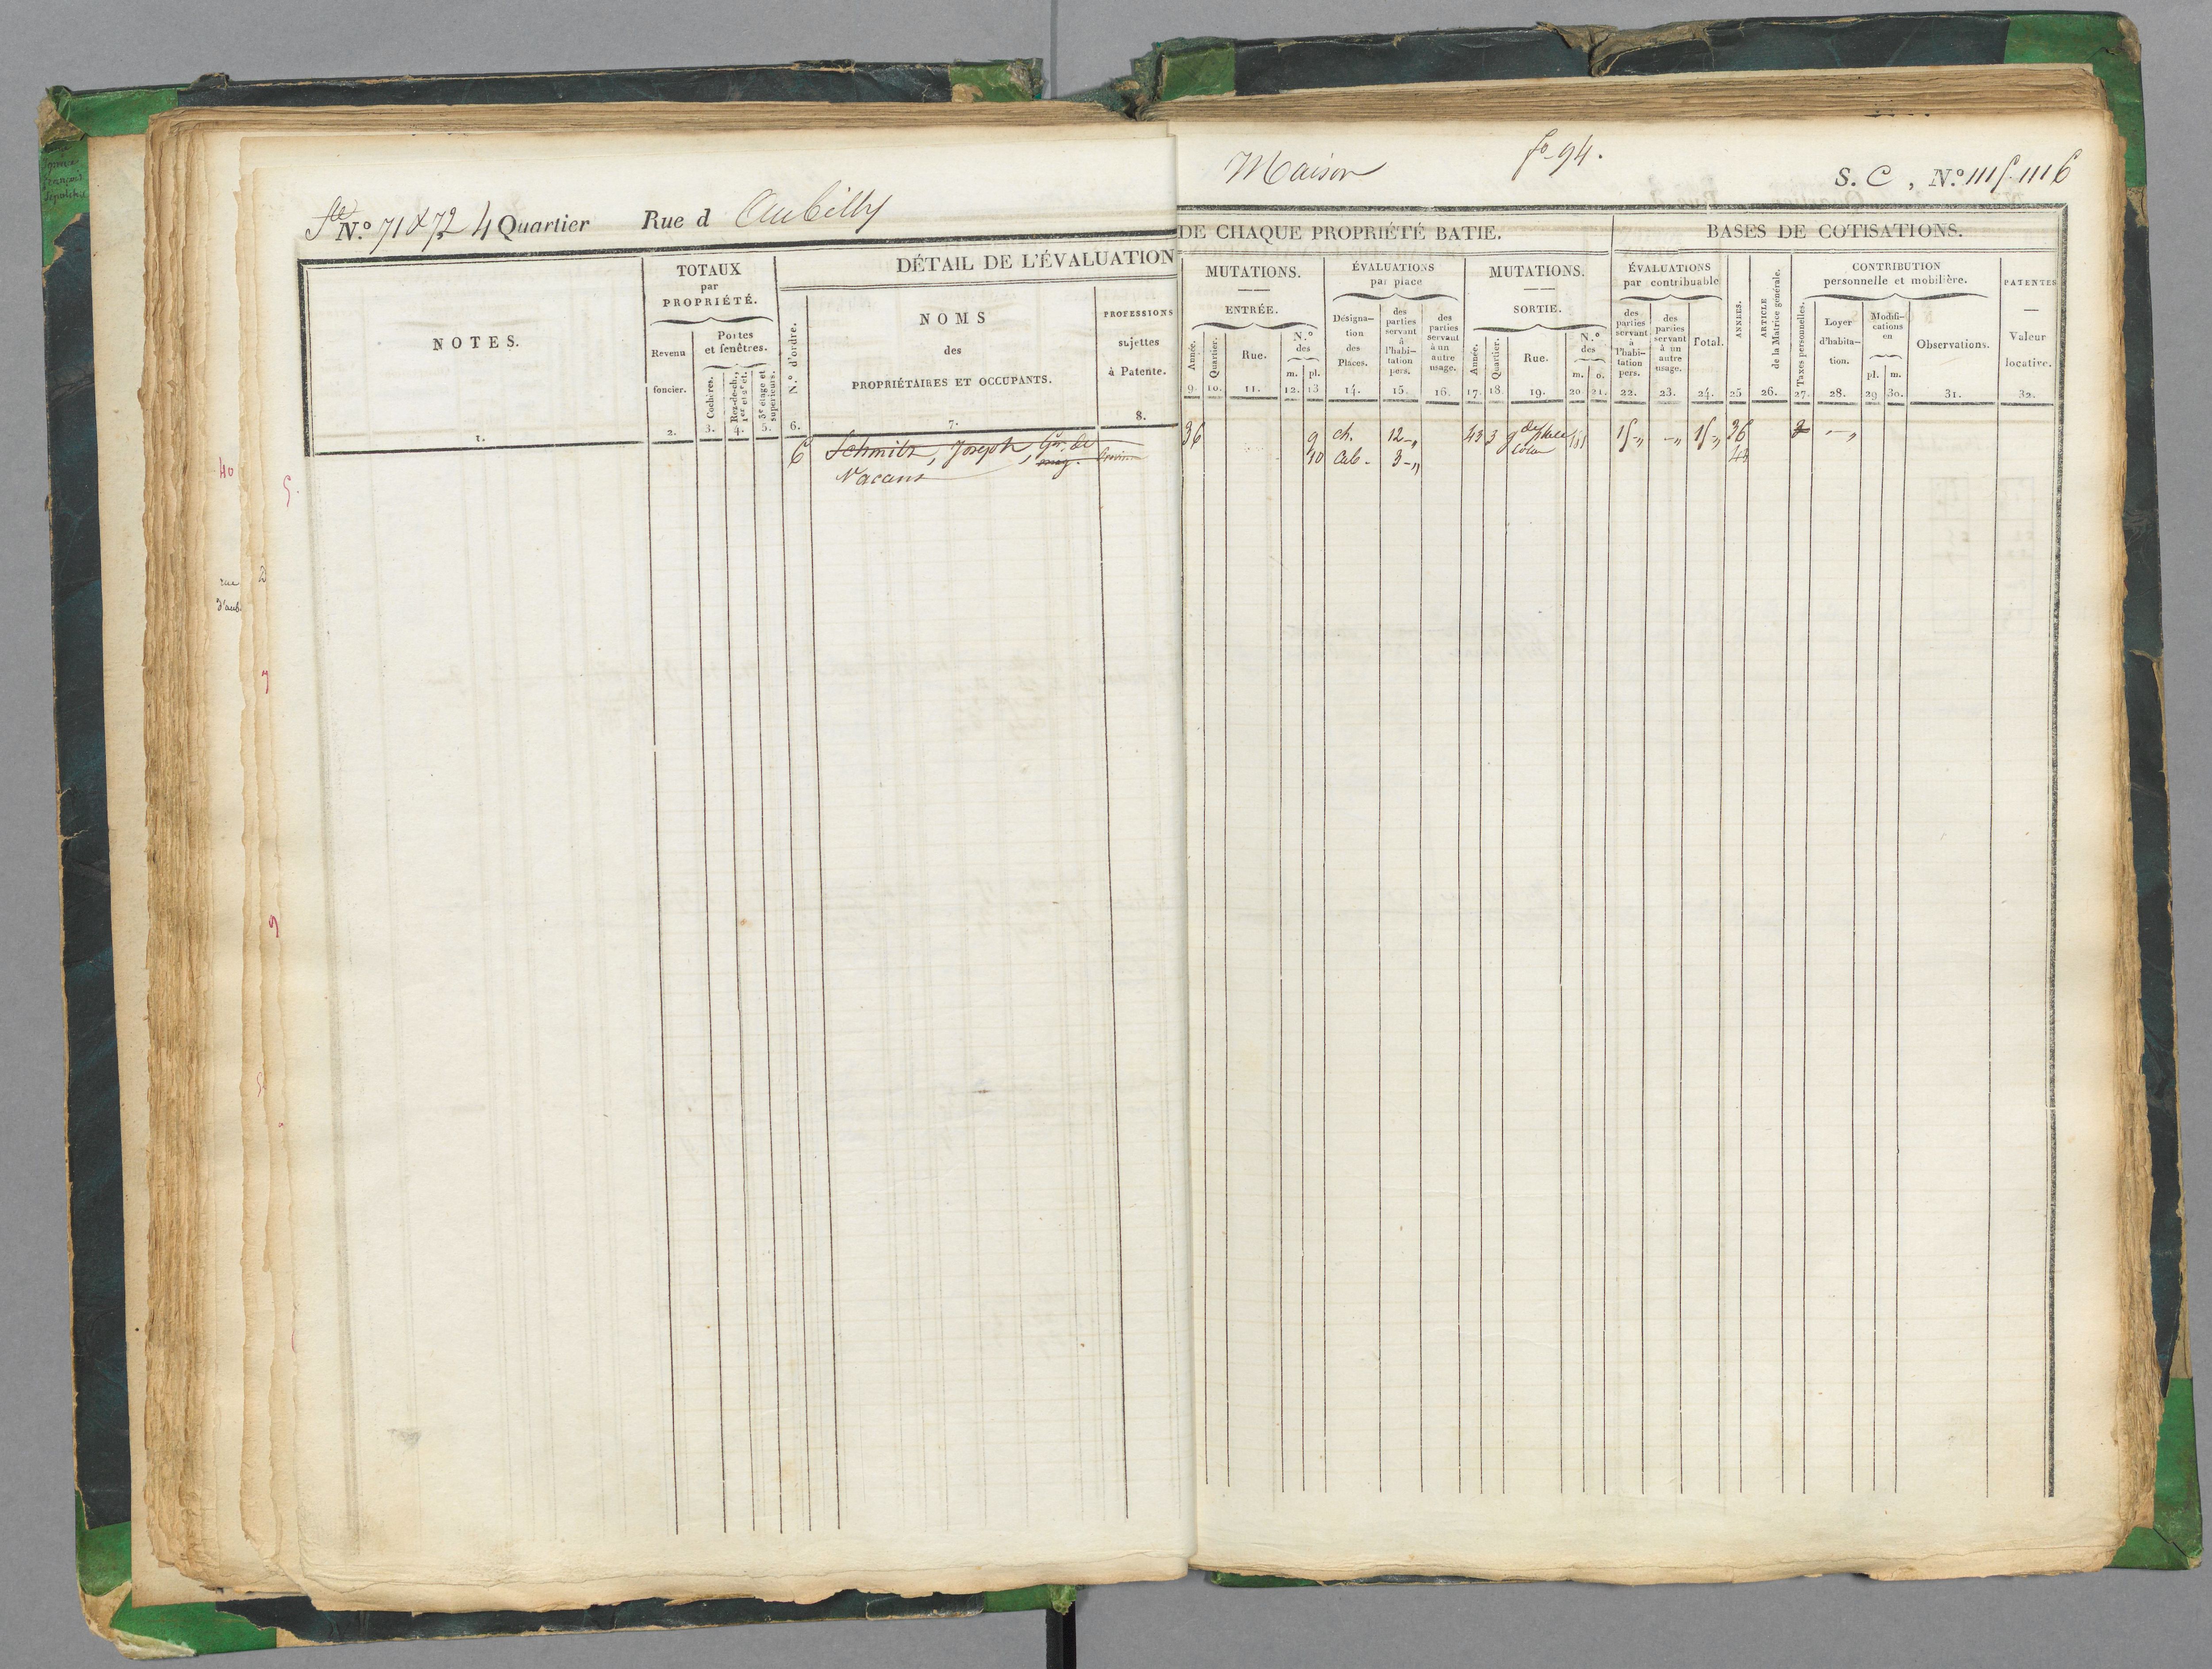 Maison
fo 94.
S. C, N.º 1115. 1116
Ste N.º 71 & 72 4 Quartier Rue d Aubilly
DÉTAIL DE L'ÉVALUATION DE CHAQUE PROPRIÉTÉ BATIE.
BASES DE COTISATIONS.
NOTES.
1.
TOTAUX
par
PROPRIÉTÉ.
Revenu
foncier.
2.
Portes
et fenêtres.
Cochères.
3.
Rez-de-ch.,
1er et 2e ét.
4.
3e étage et
supérieurs.
5.
N.º d'ordre.
6.
NOMS
des
PROPRIÉTAIRES ET OCCUPANTS.
7.
PROFESSIONS
sujettes
à Patente.
8.
MUTATIONS.
ENTRÉE.
Année.
9.
Quartier.
10.
Rue.
11.
N.º
des
m.
12.
pl.
13
ÉVALUATIONS
par place
Désigna-
tion
des
Places.
14.
des
parties
servant
à
l'habi-
tation
pers.
15.
des
parties
servant
à un
autre
usage.
16.
MUTATIONS.
SORTIE.
Année.
17.
Quartier.
18.
Rue.
19.
N.º
des
m.
20
o.
21.
ÉVALUATIONS
par contribuable
des
parties
servant
à
l'habi-
tation
pers.
22.
des
parties
servant
à un
autre
usage.
23.
Total.
24.
ANNÉES.
25
ARTICLE
de la Matrice générale.
26.
CONTRIBUTION
personnelle et mobilière.
Taxes personnelles.
27.
Loyer
d'habita-
tion.
28.
Modifi-
cations
en
pl.
29
m.
30.
Observations.
31.
PATENTES
Valeur
locative.
32.
6 Schmitz, Joseph, Gn. de mag. 36 9 ch. 12-" 43 3 15-" -" 15-" 36 2 -"
Vacant 10 Cab. 3-" 43
40
rue
d'aub.